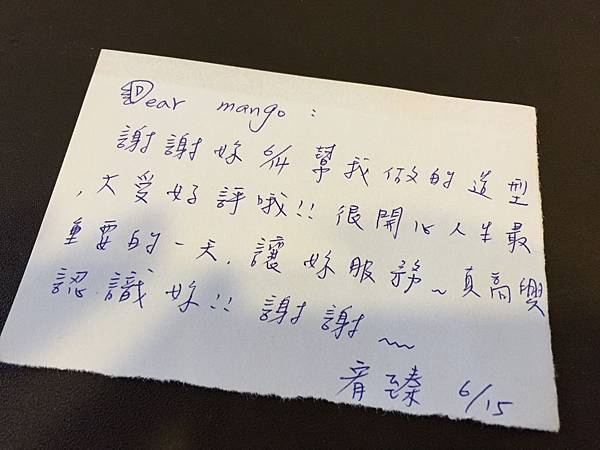 Dear mango:
謝謝妳 6/14 幫我做的造型
,大受好評哦!! 很開心人生最
重要的一天,讓妳服務~真高興
認識妳!! 謝謝~
育臻 6/15